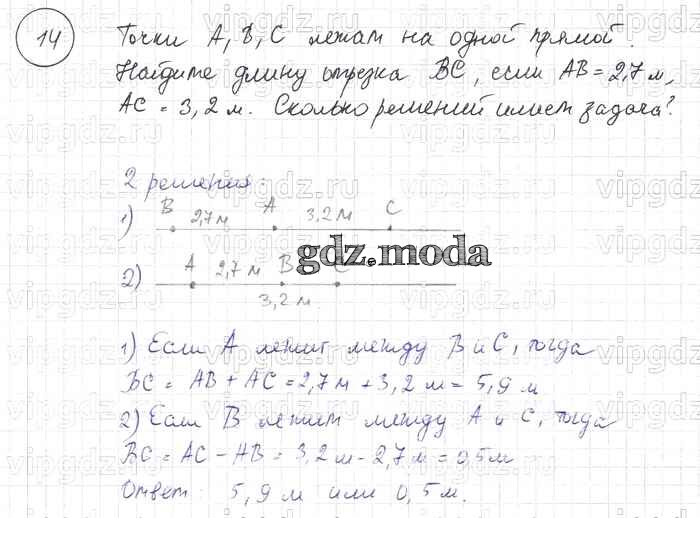 14
Точки A, B, C лежат на одной прямой.
Найдите длину отрезка BC, если AB = 2,7 м,
AC = 3,2 м. Сколько решений имеет задача?
2 решения:
1) B 2,7 м A 3,2 м C
gdz.moda
2) A 2,7 м B C
3,2 м
1) Если A лежит между B и C, тогда
BC = AB + AC = 2,7 м + 3,2 м = 5,9 м
2) Если B лежит между A и C, тогда
BC = AC - AB = 3,2 м - 2,7 м = 0,5 м
Ответ: 5,9 м или 0,5 м.
vipgdz.ru